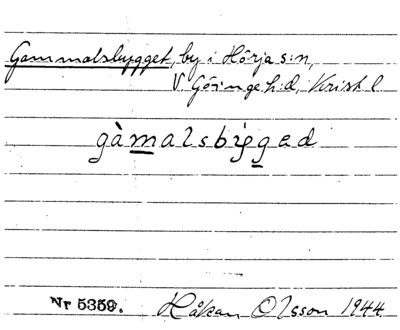 Gammalsbygget, by i Hörja s:n,
V. Göinge h:d, Krist l.
gàmalsbýgad
Nr 5359. Håkan Olsson 1944.